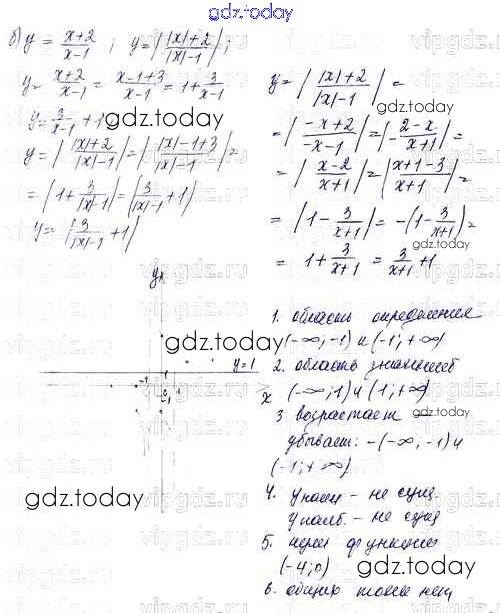 gdz.today
б) y = x+2/x-1 ; y = | |x|+2/|x|-1 | ;
y = x+2/x-1 = x-1+3/x-1 = 1 + 3/x-1
y = 3/x-1 + 1
gdz.today
y = | |x|+2/|x|-1 | = | |x|-1+3/|x|-1 | =
= | 1 + 3/|x|-1 | = | 3/|x|-1 + 1 |
y = | 3/|x|-1 + 1 |
y = | |x|+2/|x|-1 | =
gdz.today
= | -x+2/-x-1 | = | 2-x/x+1 | =
= | x-2/x+1 | = | x+1-3/x+1 | =
= | 1 - 3/x+1 | = -(1 - 3/x+1) =
gdz.today
= 1 + 3/x+1 = 3/x+1 + 1
y
gdz.today
y=1
x
-1
1
0
1. область определения
(-∞; -1) и (-1; +∞)
2. область значений
(-∞; 1) и (1; +∞)
3. возрастает —
gdz.today
убывает: -(-∞; -1) и
(-1; +∞)
4. y наим - не сущ
gdz.today
y наиб. - не сущ
5. нули функции
(-4; 0)
gdz.today
6. общих точек нет
vipgdz.ru